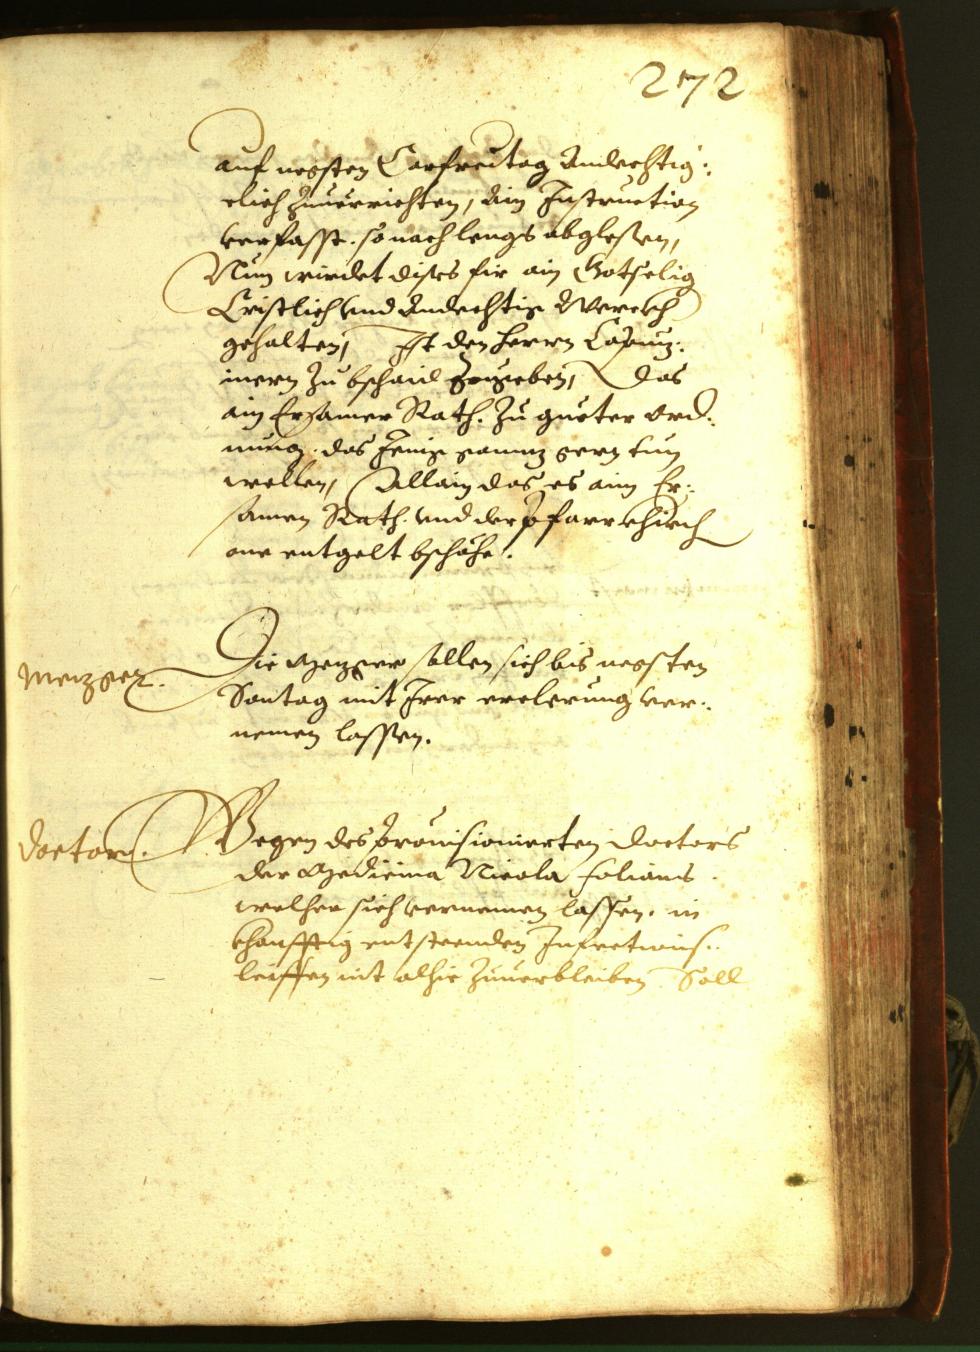 272
auf negsten Carfreitag Andechtig:
clich zuuerrichten, Ain Instruction
verfasst. so nach lengs abgleßen,
Nun wirdet dises fir ain Gotselig
Cristlich vnd Andechtig Werckh
gehalten, Ist den herrn Capuz:
inern zu bschaid zugeben, Das
ain Ersamer Rath. zu gueter Ord:
nung. das Jenig gannz gern tun
wellen, Allain das es aim Er:
samen Rath. vnd der pfarrkhirch
one entgelt bschöhe.
Menzger.
Die Menzger sollen sich bis negsten
Sontag mit Irer erclerung ver:
nemen lassen.
Doctor.
Wegen des prouisionierten Doctors
der Medicina Nicola
welher sich vernemen lassen. in
khonfftig entsteenden Infections.
leiffen nit alhie zuuerbleiben Soll